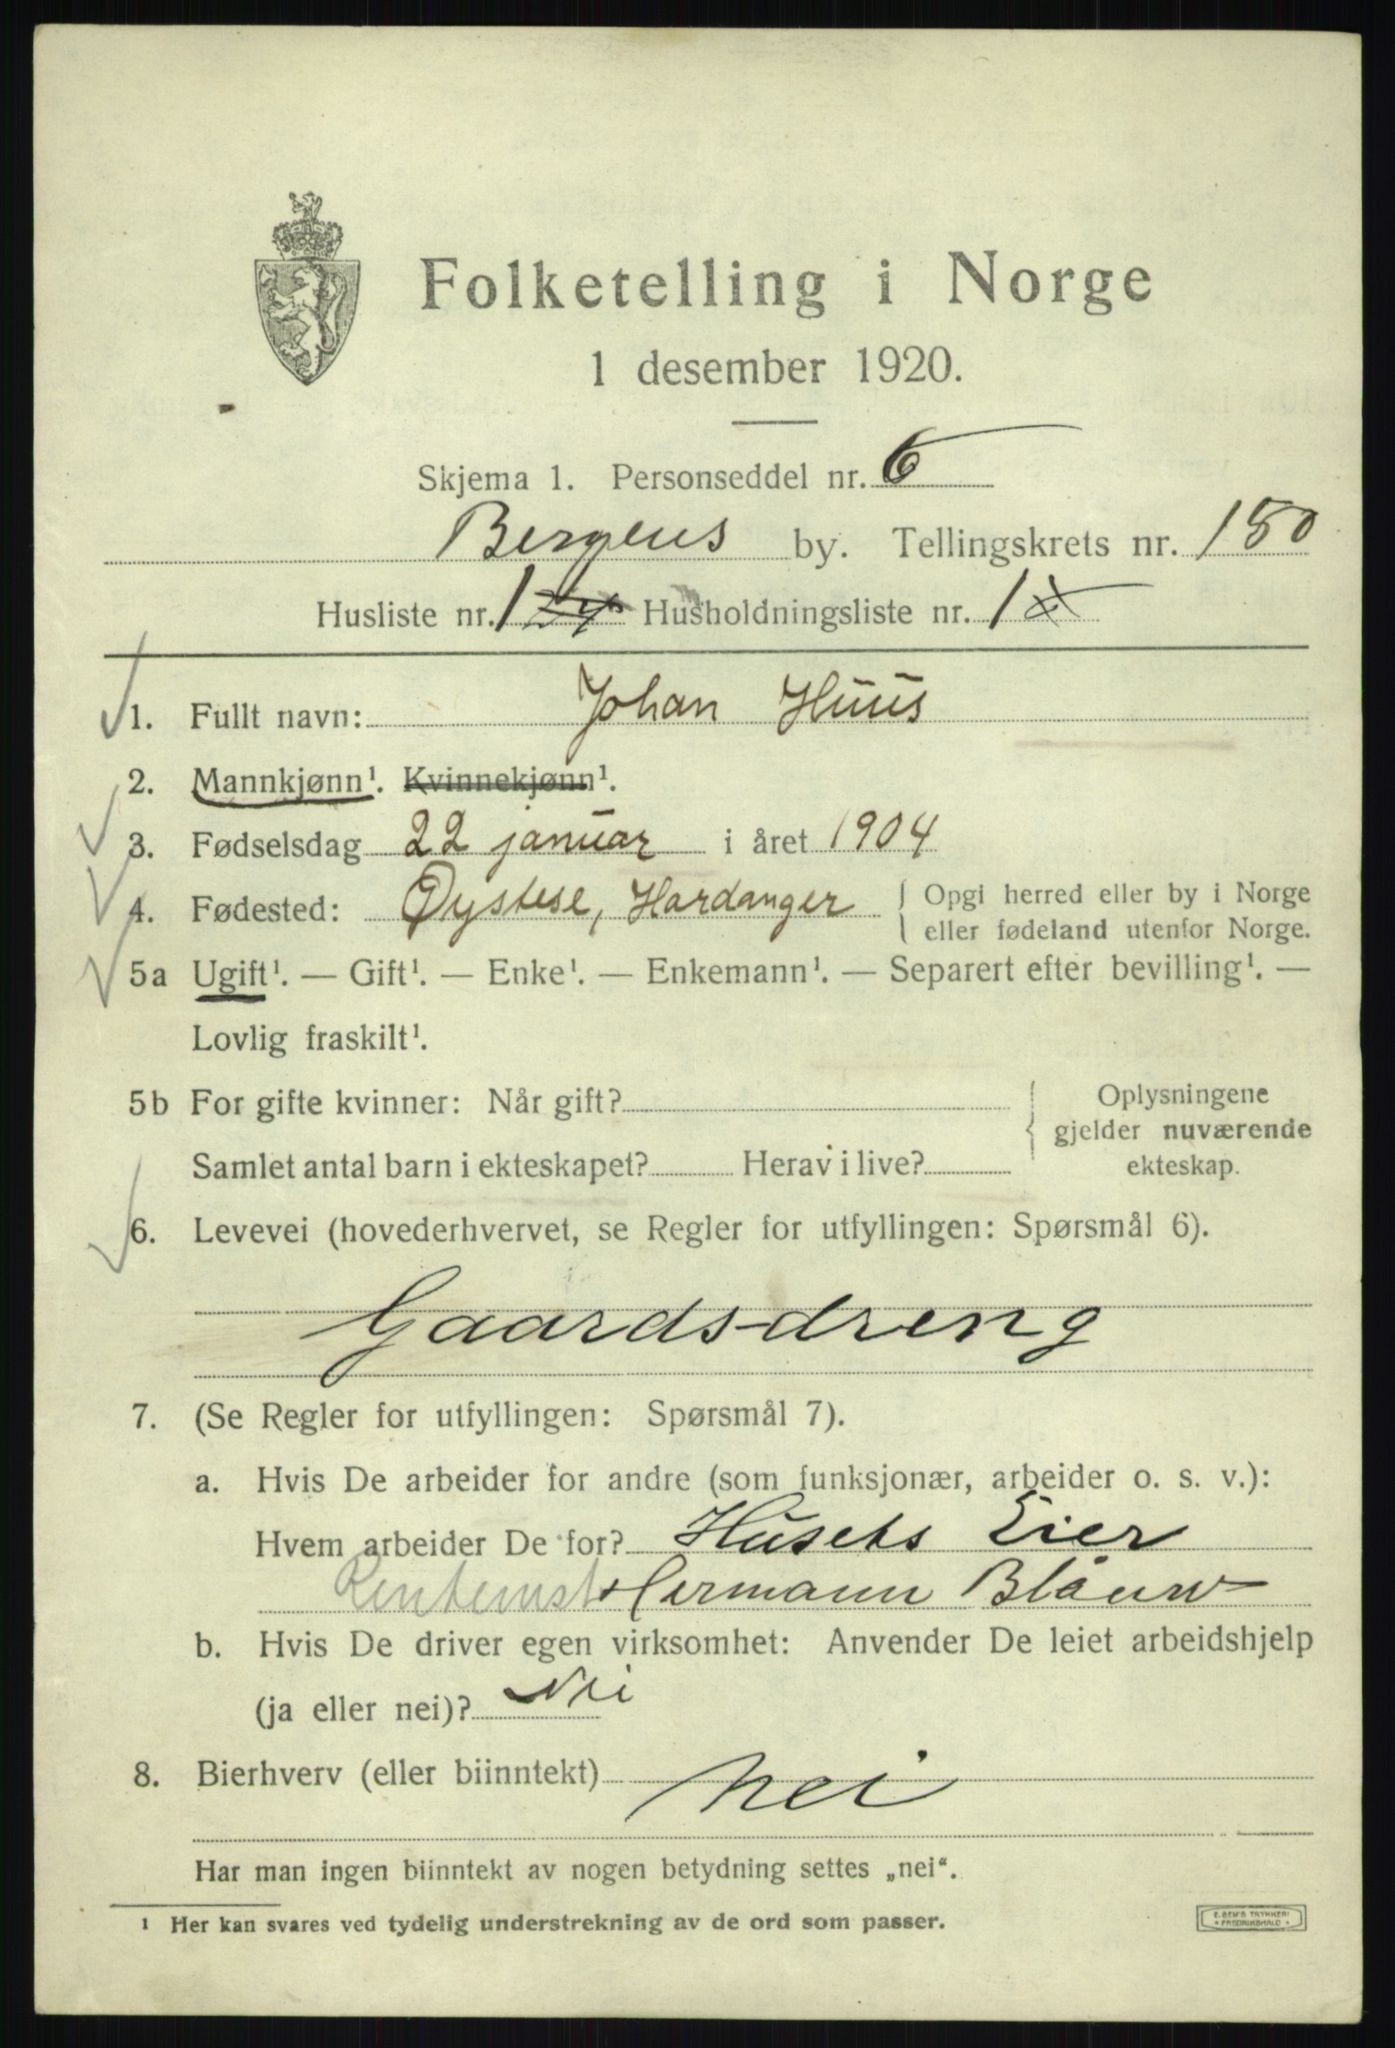 Folketelling i Norge
1 desember 1920.
Skjema 1. Personseddel nr. 6
Bergens by. Tellingskrets nr. 150
Husliste nr. 1 Husholdningsliste nr. 1
1. Fullt navn: Johan Huus
2. Mannkjønn¹. Kvinnekjønn¹.
3. Fødselsdag 22 januar i året 1904
4. Fødested: Øystese, Hardanger { Opgi herred eller by i Norge
eller fødeland utenfor Norge.
5a Ugift¹. — Gift¹. — Enke¹. — Enkemann¹. — Separert efter bevilling¹. —
Lovlig fraskilt¹.
5b For gifte kvinner: Når gift?
Samlet antal barn i ekteskapet? Herav i live?
{ Oplysningene
gjelder nuværende
ekteskap.
6. Levevei (hovederhvervet, se Regler for utfyllingen: Spørsmål 6).
Gaardsdreng
7. (Se Regler for utfyllingen: Spørsmål 7).
a. Hvis De arbeider for andre (som funksjonær, arbeider o. s. v.):
Hvem arbeider De for? Husets Eier
Hermann Blauw
b. Hvis De driver egen virksomhet: Anvender De leiet arbeidshjelp
(ja eller nei)? Nei
8. Bierhverv (eller biinntekt) Nei
Har man ingen biinntekt av nogen betydning settes „nei“.
¹ Her kan svares ved tydelig understrekning av de ord som passer.
E. SEM'S TRYKKERI
* FREDRIKSHALD *